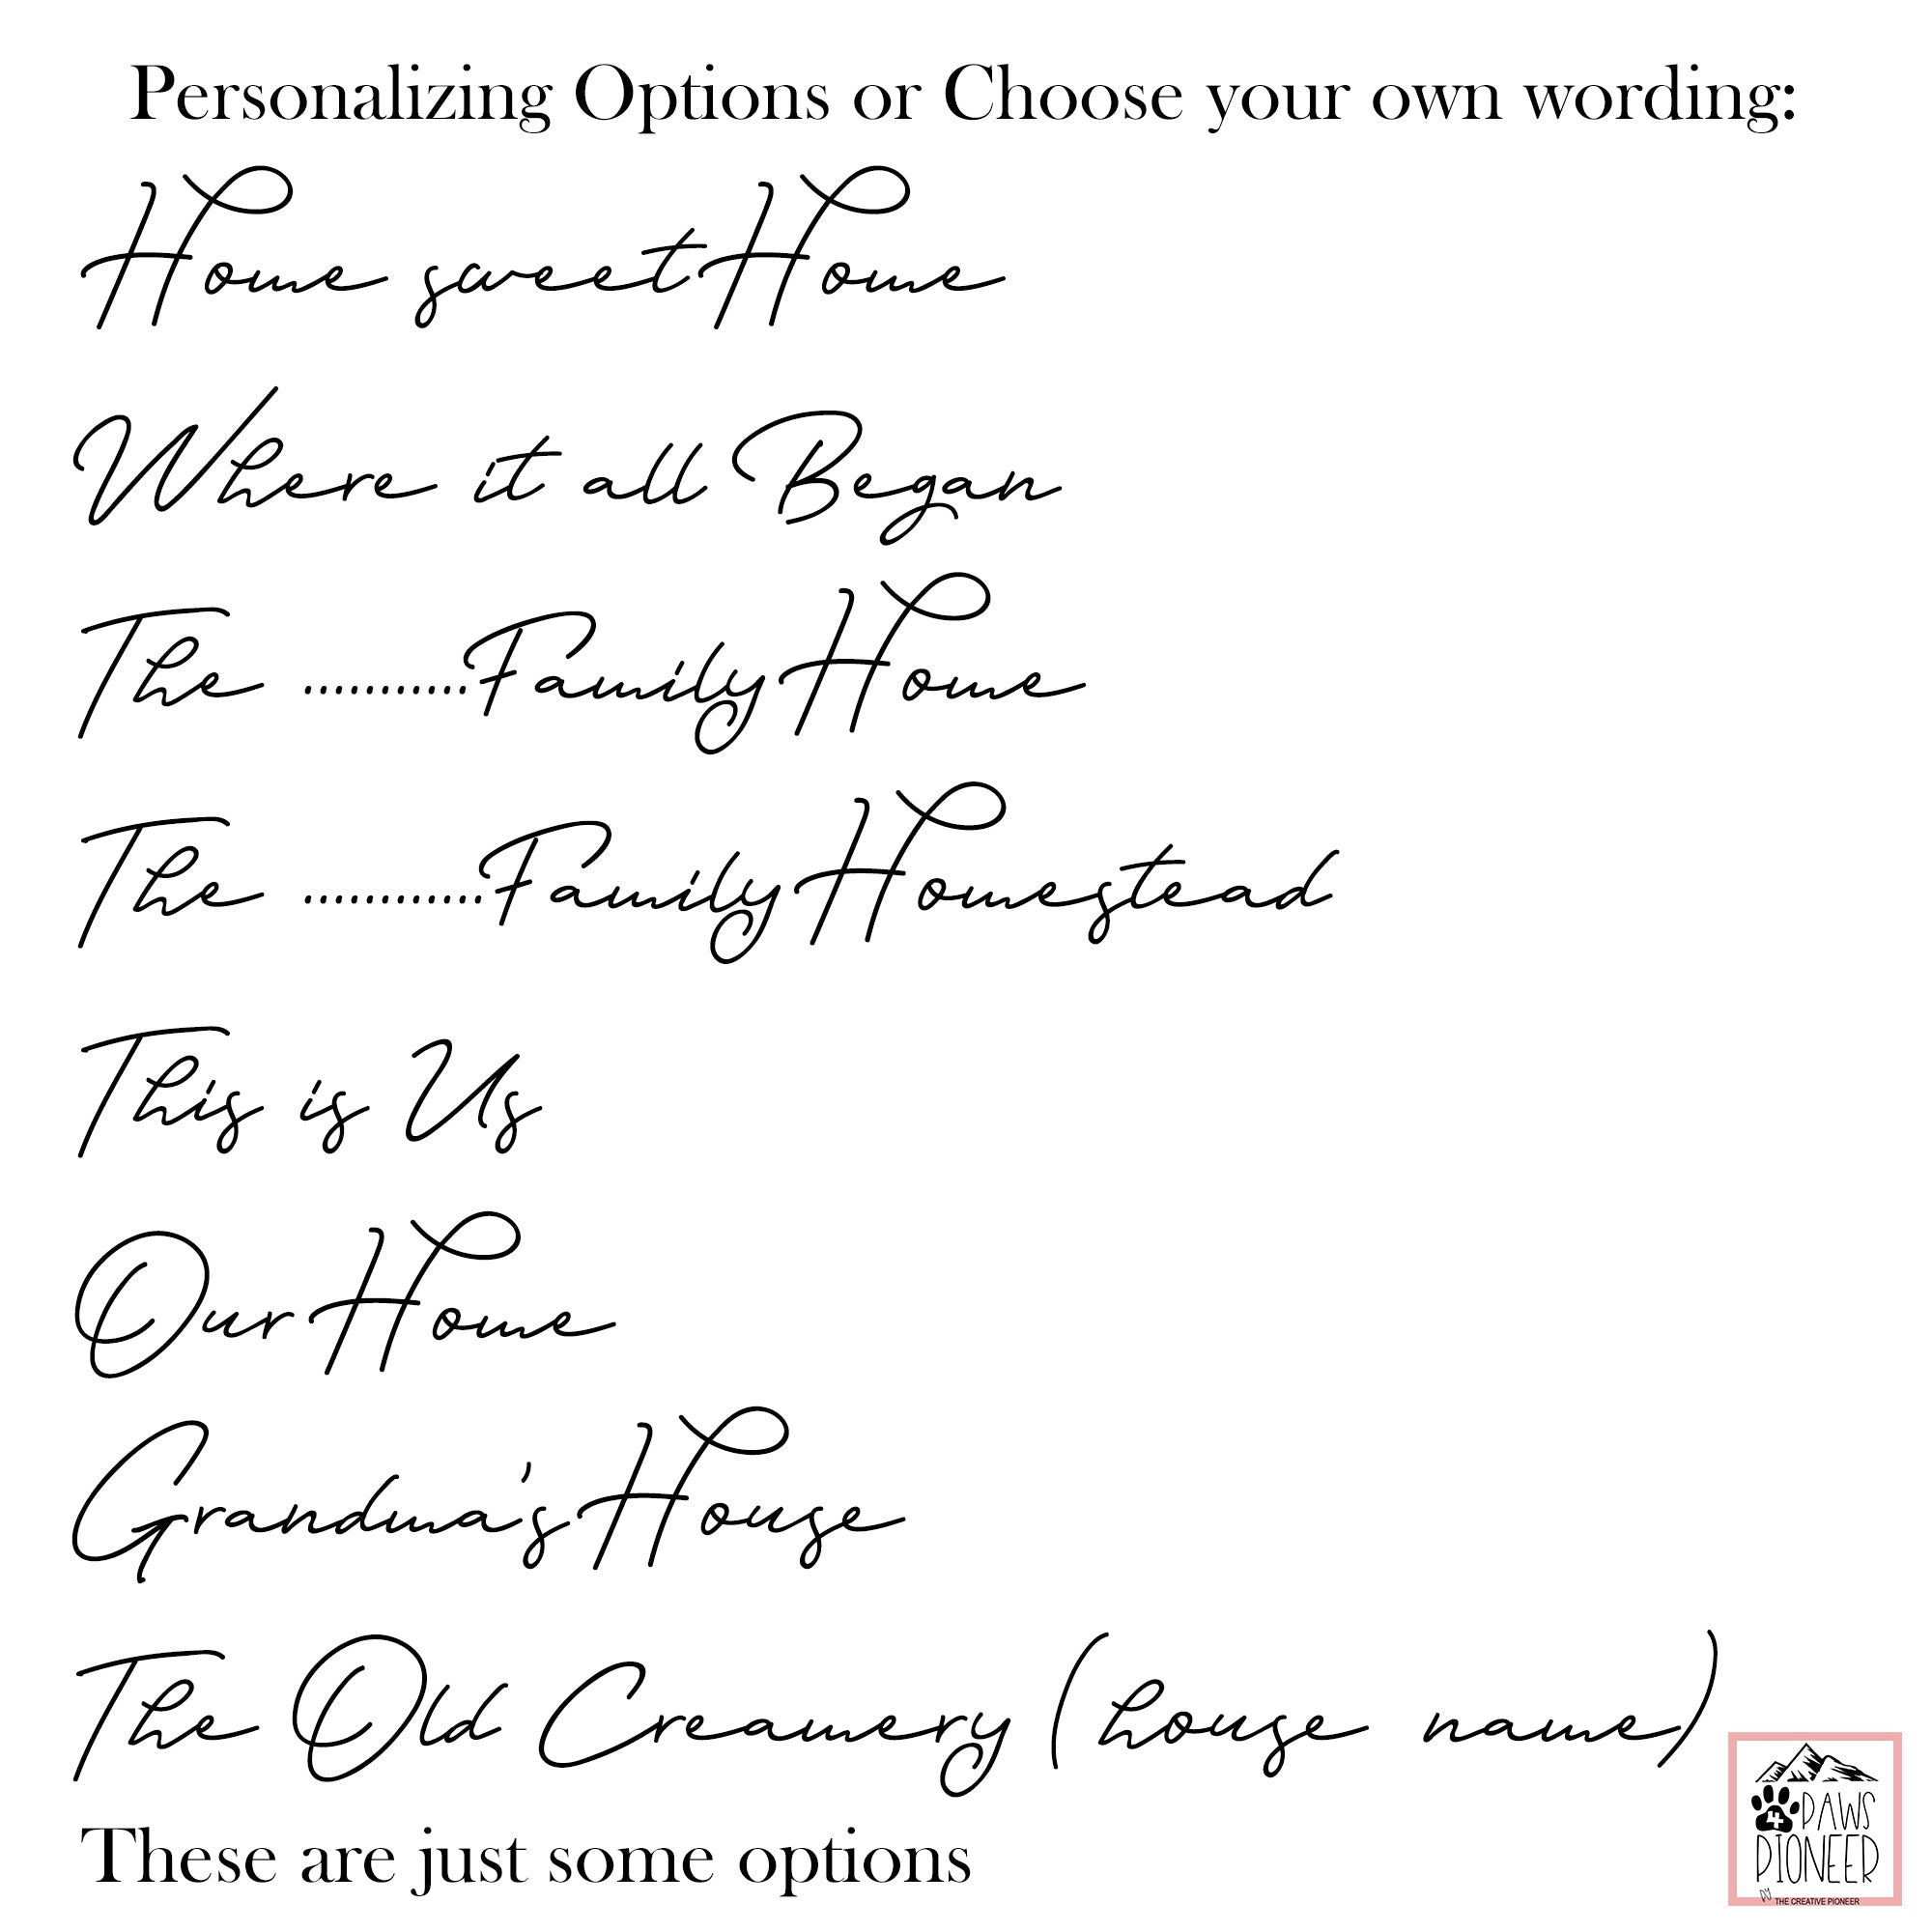 Personalizing Options or Choose your own wording:
Home sweet Home
Where it all Began
The ...........Family Home
The ............Family Homestead
This is Us
Our Home
Grandma's House
The Old Creamery (house name)
These are just some options
4 PAWS
PIONEER
BY THE CREATIVE PIONEER